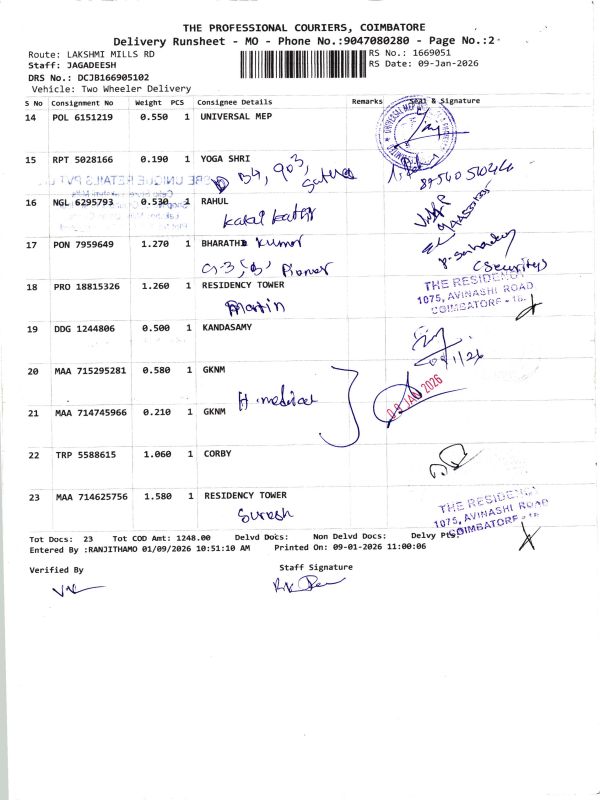 THE PROFESSIONAL COURIERS, COIMBATORE
Delivery Runsheet - MO - Phone No.:9047080280 - Page No.:2
Route: LAKSHMI MILLS RD
RS No.: 1669051
Staff: JAGADEESH
RS Date: 09-Jan-2026
DRS No.: DCJB166905102
Vehicle: Two Wheeler Delivery
S No Consignment No Weight PCS Consignee Details Remarks Seal & Signature
14 POL 6151219 0.550 1 UNIVERSAL MEP
15 RPT 5028166 0.190 1 YOGA SHRI
D4, 903,
16 NGL 6295793 0.530 1 RAHUL
17 PON 7959649 1.270 1 BHARATHI Kumar
(Security)
18 PRO 18815326 1.260 1 RESIDENCY TOWER
Martin
THE RESIDENCY
1075, AVINASHI ROAD
COIMBATORE - 18.
19 DDG 1244806 0.500 1 KANDASAMY
20 MAA 715295281 0.580 1 GKNM
H. medical
09 JAN 2026
21 MAA 714745966 0.210 1 GKNM
22 TRP 5588615 1.060 1 CORBY
23 MAA 714625756 1.580 1 RESIDENCY TOWER
Suresh
THE RESIDENCY
1075, AVINASHI ROAD
COIMBATORE - 18.
Tot Docs: 23 Tot COD Amt: 1248.00 Delvd Docs: Non Delvd Docs: Delvy Pts:
Entered By :RANJITHAMO 01/09/2026 10:51:10 AM Printed On: 09-01-2026 11:00:06
Verified By
Staff Signature